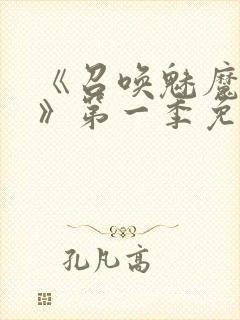 《召唤魅魔
》第一季免
孔凡高